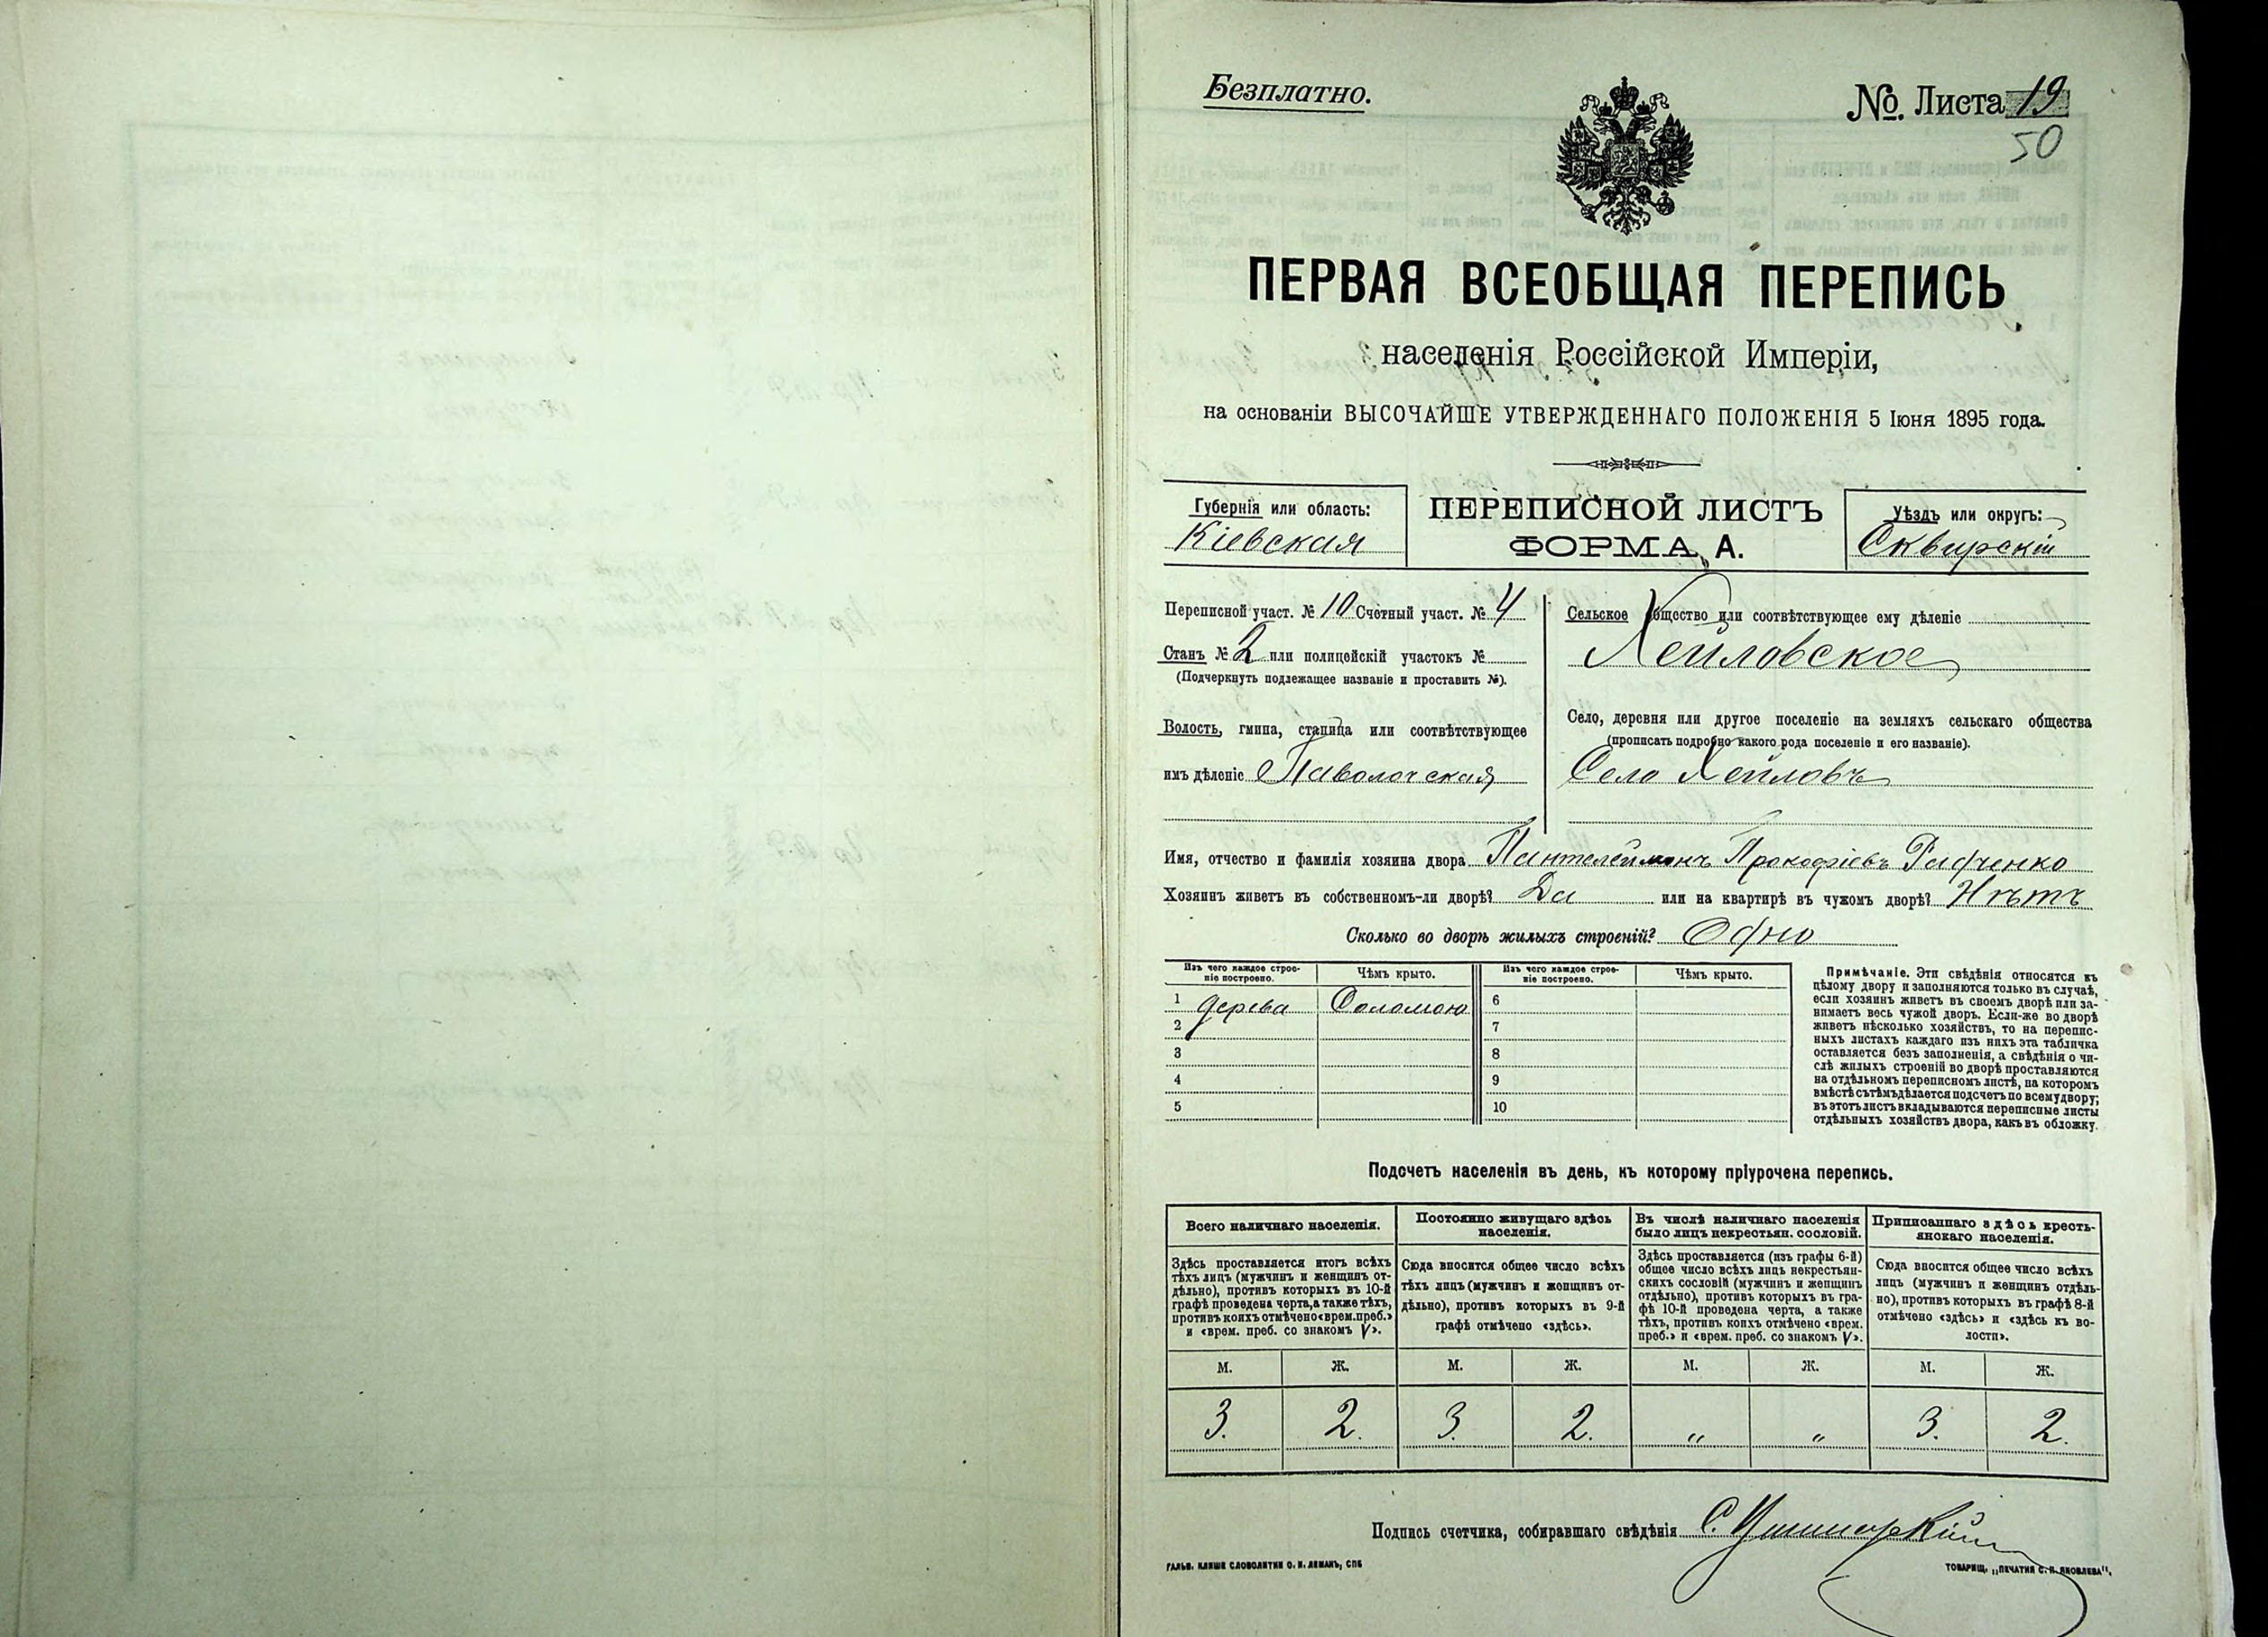 Безплатно.
№ Листа 19
50
ПЕРВАЯ ВСЕОБЩАЯ ПЕРЕПИСЬ
населенія Россійской Имперіи,
на основаніи ВЫСОЧАЙШЕ УТВЕРЖДЕННАГО ПОЛОЖЕНІЯ 5 Іюня 1895 года.
Губернія или область:
Кіевская
ПЕРЕПИСНОЙ ЛИСТЪ
ФОРМА А.
Уѣздъ или округъ:
Сквирскій
Переписной участ. № 10 Счетный участ. № 4
Станъ № 2 или полицейскій участокъ №
(Подчеркнуть подлежащее названіе и проставить №).
Волость, гмина, станица или соотвѣтствующее
имъ дѣленіе Паволочская
Сельское общество или соотвѣтствующее ему дѣленіе
Хейловское
Село, деревня или другое поселеніе на земляхъ сельскаго общества
(прописать подробно какого рода поселеніе и его названіе).
Село Хейловъ
Имя, отчество и фамилія хозяина двора Пантелеймонъ Прокофіевъ Радченко
Хозяинъ живетъ въ собственномъ-ли дворѣ? Да или на квартирѣ въ чужомъ дворѣ? Нѣтъ
Сколько во дворѣ жилыхъ строеній? Одно
Изъ чего каждое строе-
ніе построено.
Чѣмъ крыто.
Изъ чего каждое строе-
ніе построено.
Чѣмъ крыто.
1 дерева Соломою 6
2 7
3 8
4 9
5 10
Примѣчаніе. Эти свѣдѣнія относятся къ
цѣлому двору и заполняются только въ случаѣ,
если хозяинъ живетъ въ своемъ дворѣ или за-
нимаетъ весь чужой дворъ. Если-же во дворѣ
живетъ нѣсколько хозяйствъ, то на перепис-
ныхъ листахъ каждаго изъ нихъ эта табличка
оставляется безъ заполненія, а свѣдѣнія о чи-
слѣ жилыхъ строеній во дворѣ проставляются
на отдѣльномъ переписномъ листѣ, на которомъ
вмѣстѣ съ тѣмъ дѣлается подсчетъ по всему двору;
въ этотъ листъ вкладываются переписные листы
отдѣльныхъ хозяйствъ двора, какъ въ обложку.
Подсчетъ населенія въ день, къ которому пріурочена перепись.
Всего наличнаго населенія.
Здѣсь проставляется итогъ всѣхъ
тѣхъ лицъ (мужчинъ и женщинъ от-
дѣльно), противъ которыхъ въ 10-й
графѣ проведена черта, а также тѣхъ,
противъ коихъ отмѣчено «врем. преб.»
и «врем. преб. со знакомъ V».
Постоянно живущаго здѣсь
населенія.
Сюда вносится общее число всѣхъ
тѣхъ лицъ (мужчинъ и женщинъ от-
дѣльно), противъ которыхъ въ 9-й
графѣ отмѣчено «здѣсь».
Въ числѣ наличнаго населенія
было лицъ некрестьян. сословій.
Здѣсь проставляется (изъ графы 6-й)
общее число всѣхъ лицъ некрестьян-
скихъ сословій (мужчинъ и женщинъ
отдѣльно), противъ которыхъ въ гра-
фѣ 10-й проведена черта, а также
тѣхъ, противъ коихъ отмѣчено «врем.
преб.» и «врем. преб. со знакомъ V».
Приписаннаго здѣсь кресть-
янскаго населенія.
Сюда вносится общее число всѣхъ
лицъ (мужчинъ и женщинъ отдѣль-
но), противъ которыхъ въ графѣ 8-й
отмѣчено «здѣсь» и «здѣсь къ во-
лости».
М. Ж. М. Ж. М. Ж. М. Ж.
3. 2. 3. 2. „ „ 3. 2.
Подпись счетчика, собиравшаго свѣдѣнія С.
ГАЛЬВ. КЛИШЕ СЛОВОЛИТНИ О. И. ЛЕМАНЪ, СПБ
ТОВАРИЩ. „ПЕЧАТНЯ С. П. ЯКОВЛЕВА“.